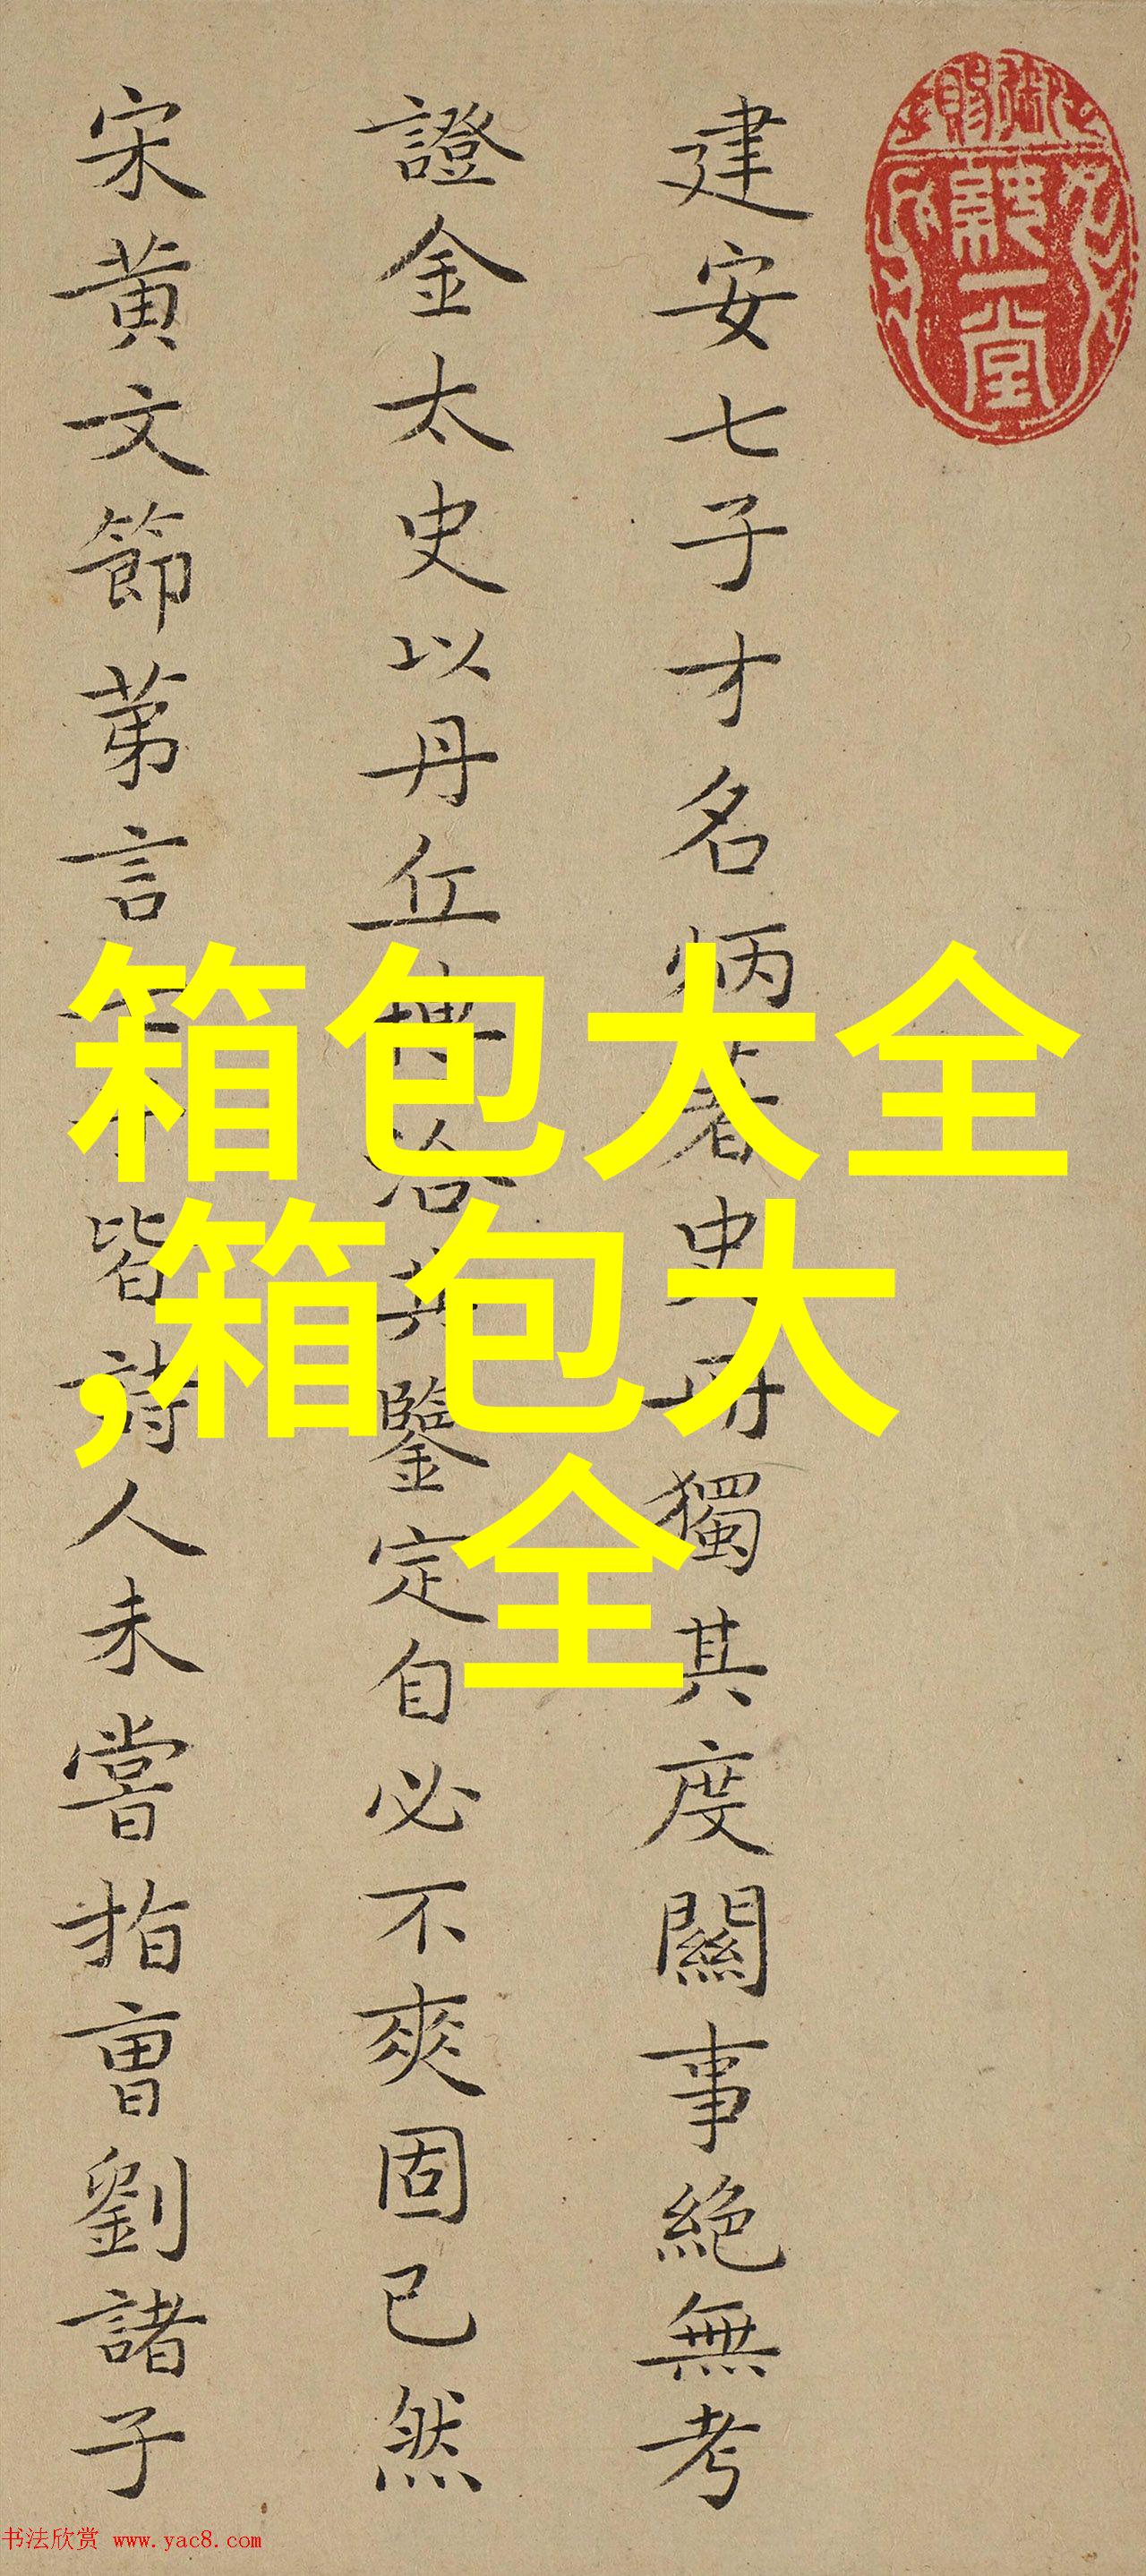 建安七子才名炳著史冊獨其度關事絕無考
證金太史以丹丘博洽其鑒定自必不爽固已然
宋黃文節苐言皆詩人未嘗指曹劉諸子
箱包大全
,箱包大
全
书法欣赏 www.yac8.com